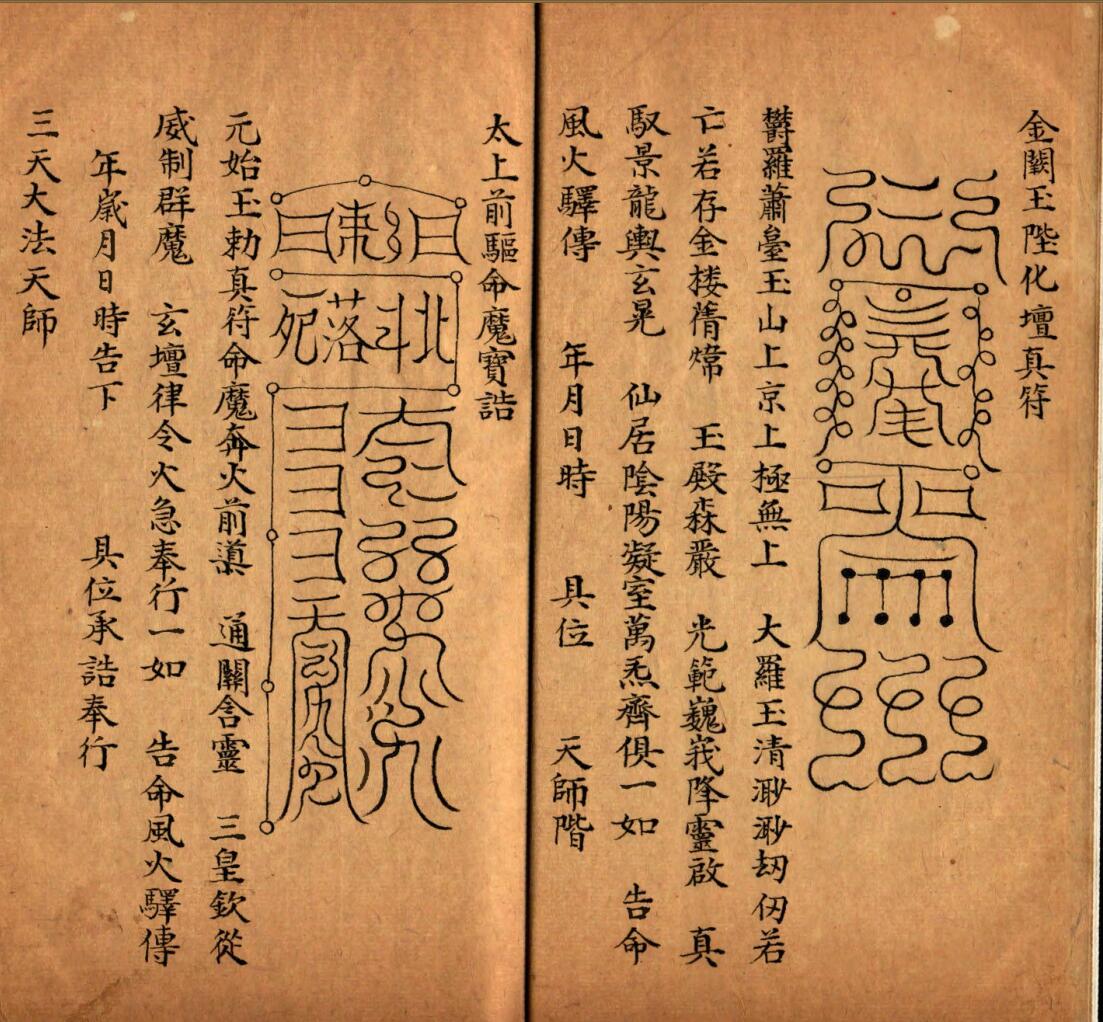 金闕玉陛化壇真符
鬱羅蕭臺玉山上京上極無上 大羅玉清渺渺劫仞若
亡若存金楼蒨煒 玉殿森嚴 光範巍峩降靈啟 真
馭景龍輿玄晃 仙居陰陽凝室萬炁齊俱一如 告命
風火驛傳 年月日時 具位 天師階
太上前驅命魔寶誥
日 東 日
北斗落死
元始玉勅真符命魔奔火前導 通關含靈 三皇欽從
威制群魔 玄壇律令火急奉行一如 告命風火驛傳
年歲月日時告下 具位承誥奉行
三天大法天師